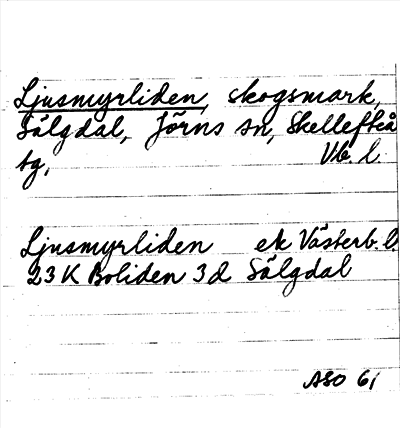 Ljusmyrliden, skogsmark,
Sälgdal, Jörns sn, Skellefteå
tg, Vb. l.
Ljusmyrliden ek Västerb. l.
23 K Boliden 3 d Sälgdal
ASO 61